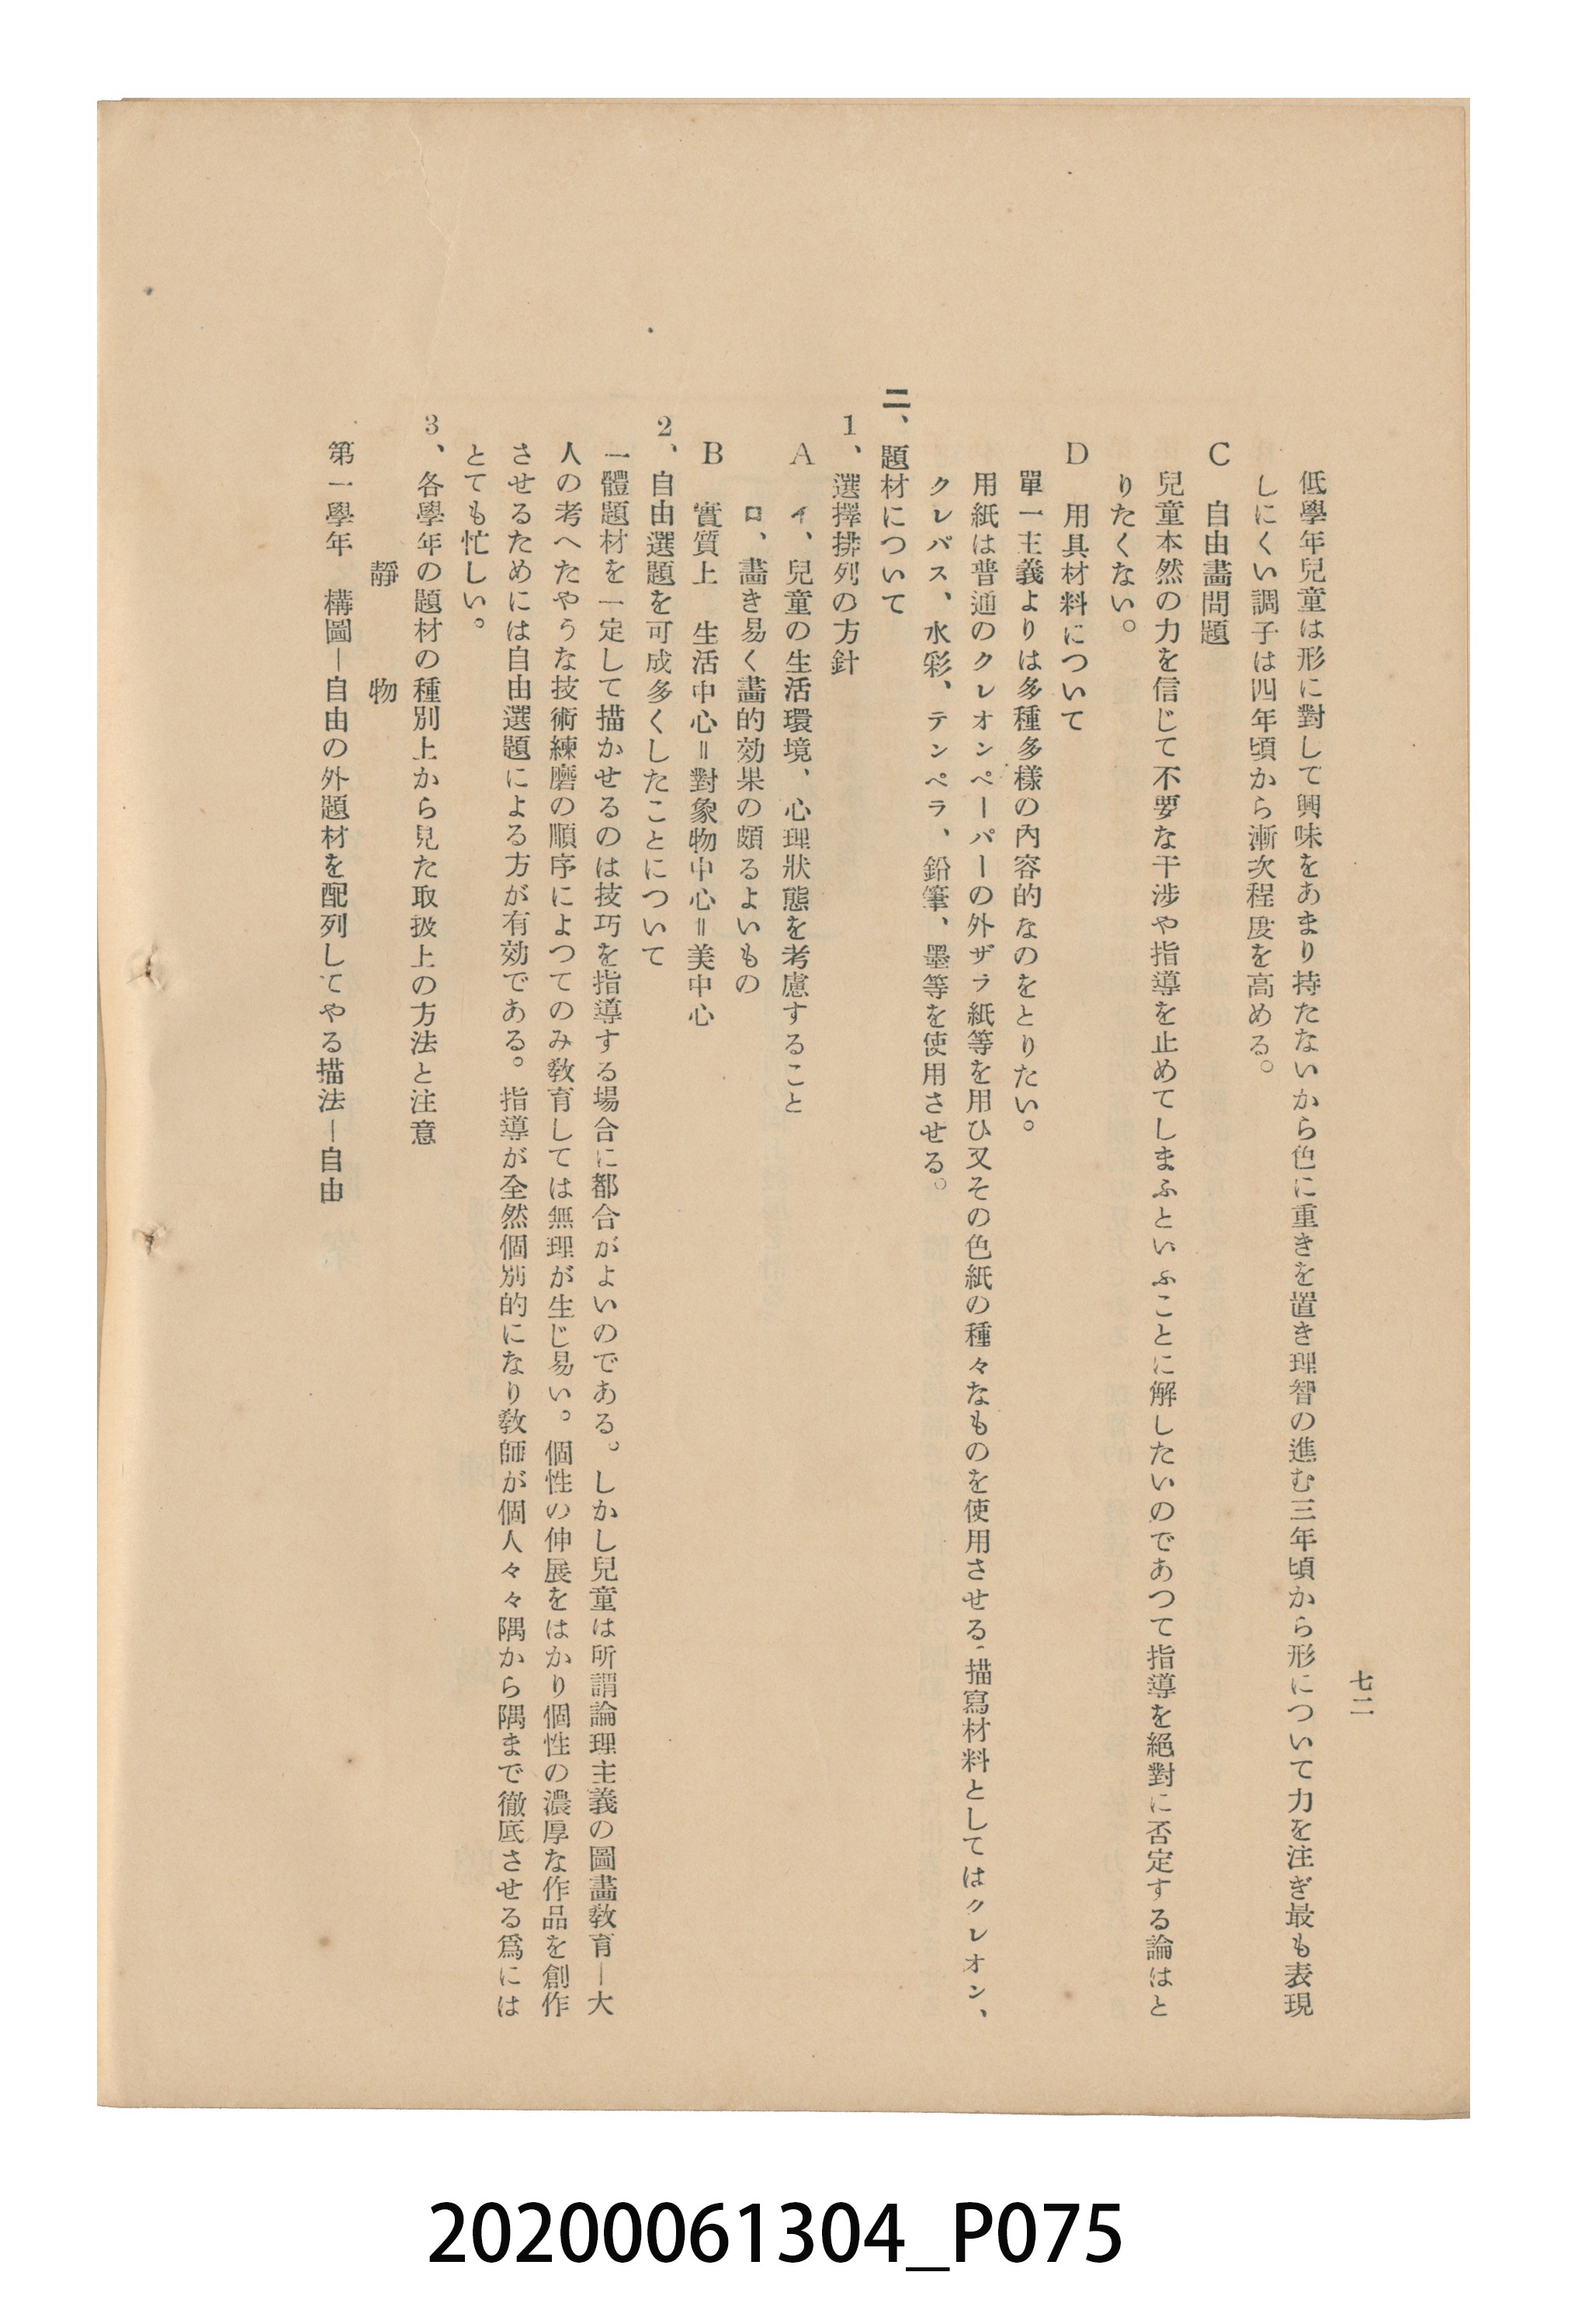 七二
低學年兒童は形に對して興味をあまり持たないから色に重きを置き理智の進む三年頃から形について力を注ぎ最も表現
しにくい調子は四年頃から漸次程度を高める。
C　自由畫問題
兒童本然の力を信じて不要な干涉や指導を止めてしまふといふことに解したいのであつて指導を絕對に否定する論はと
りたくない。
D　用具材料について
單一主義よりは多種多樣の內容的なのをとりたい。
用紙は普通のクレオンペーパーの外ザラ紙等を用ひ又その色紙の種々なものを使用させる、描寫材料としてはクレオン、
クレパス、水彩、テンペラ、鉛筆、墨等を使用させる。
二、題材について
1、選擇排列の方針
A　イ、兒童の生活環境、心理狀態を考慮すること
ロ、畵き易く畵的効果の頗るよいもの
B　實質上　生活中心＝對象物中心＝美中心
2、自由選題を可成多くしたことについて
一體題材を一定して描かせるのは技巧を指導する場合に都合がよいのである。しかし兒童は所謂論理主義の圖畫敎育ー大
人の考へたやうな技術練磨の順序によつてのみ敎育しては無理が生じ易い。個性の伸展をはかり個性の濃厚な作品を創作
させるためには自由選題による方が有効である。指導が全然個別的になり敎師が個人々々隅から隅まで徹底させる爲には
とても忙しい。
3、各學年の題材の種別上から見た取扱上の方法と注意
靜　物
第一學年　構圖ー自由の外題材を配列してやる描法ー自由
20200061304_P075